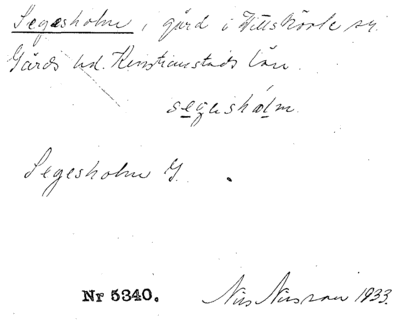 Segesholm, gård i Vittskövle sn.
Gärds hd. Kristianstads län.
Segesholm G.
Nr 5340. Nils Nilsson 1933.